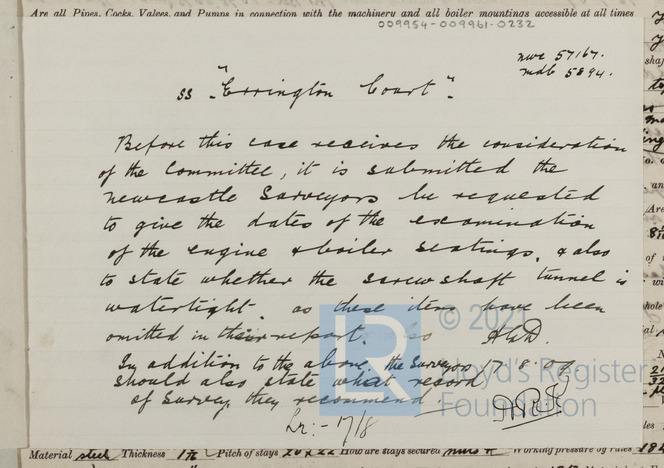 Are all Pipes, Cocks, Valves, and Pumps in connection with the machinery and all boiler mountings accessible at all times
009954-009961-0232
nwc 57167.
mdb 5894.
ss "Errington Court".
Before this case receives the consideration
of the Committee, it is submitted the
Newcastle Surveyors be requested
to give the dates of the examination
of the engine & boiler seatings, & also
to state whether the screwshaft tunnel is
watertight. as these items have been
omitted in their report.
17.8.
In addition to the above, the Surveyors
should also state what record
of Survey they recommend
Lr:- 17/8
© 2021
Lloyd's Register
Foundation
LR
Material steel Thickness Pitch of stays How are stays secured Working pressure by rules